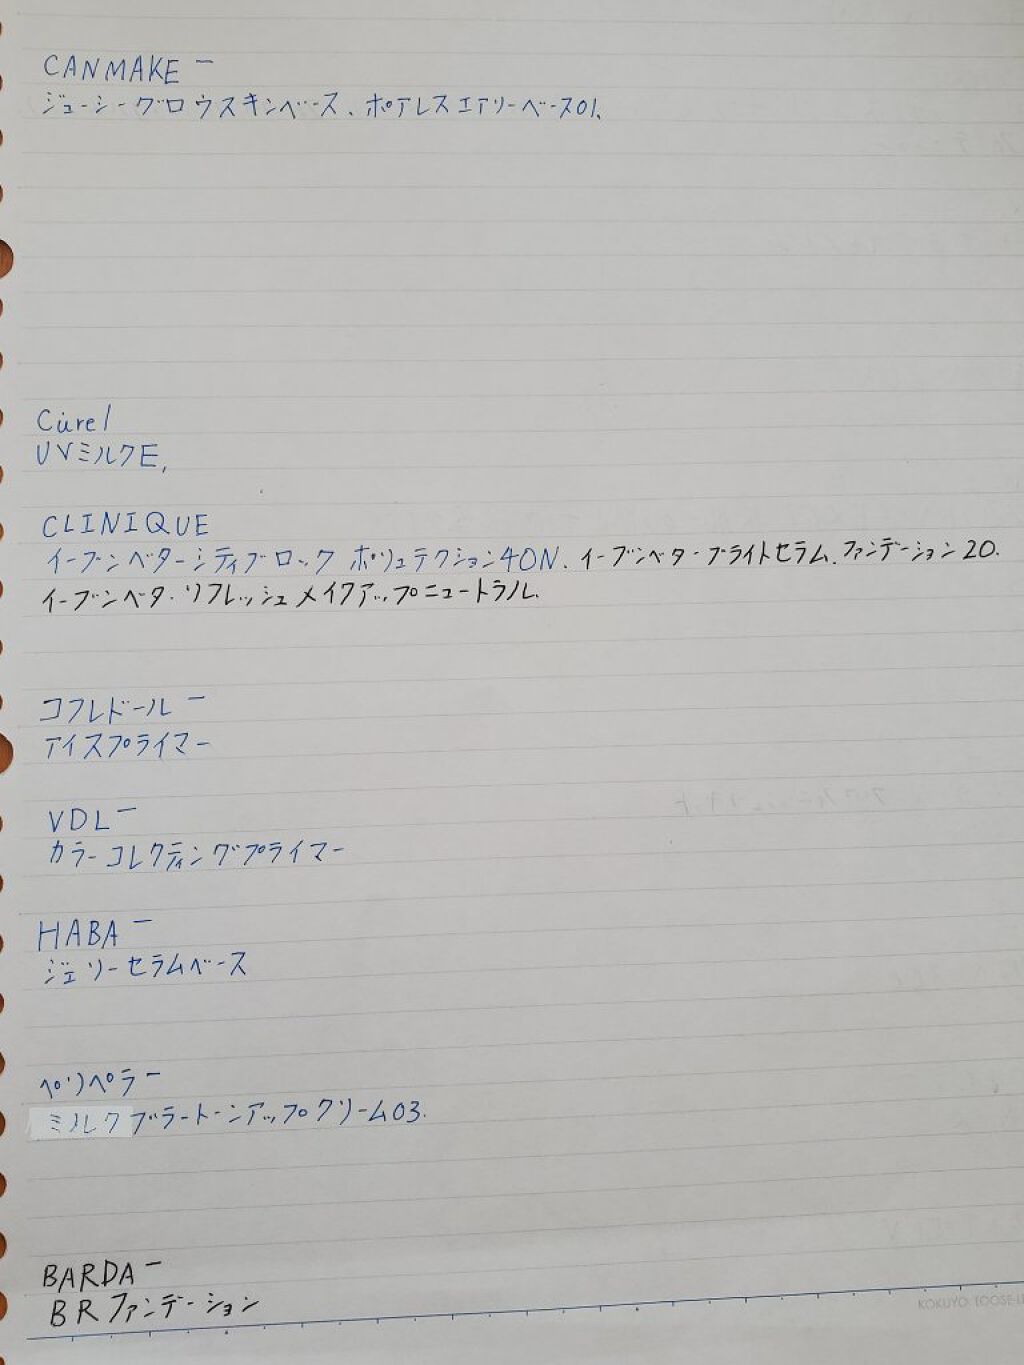 CANMAKE ー
ジューシーグロウスキンベース、ポアレスエアリーベース01、
Curel
UVミルクE,
CLINIQUE
イーブンベターシティブロック ポリュテクション40N、イーブンベターブライトセラム、ファンデーション20.
イーブンベターリフレッシュメイクアップニュートラル、
コフレドール ー
アイスプライマー
VDL ー
カラーコレクティングプライマー
HABA ー
ジェリーセラムベース
ペリペラ ー
ミルクブラートーンアップクリーム03.
BARDA ー
BRファンデーション
KOKUYO LOOSE-L